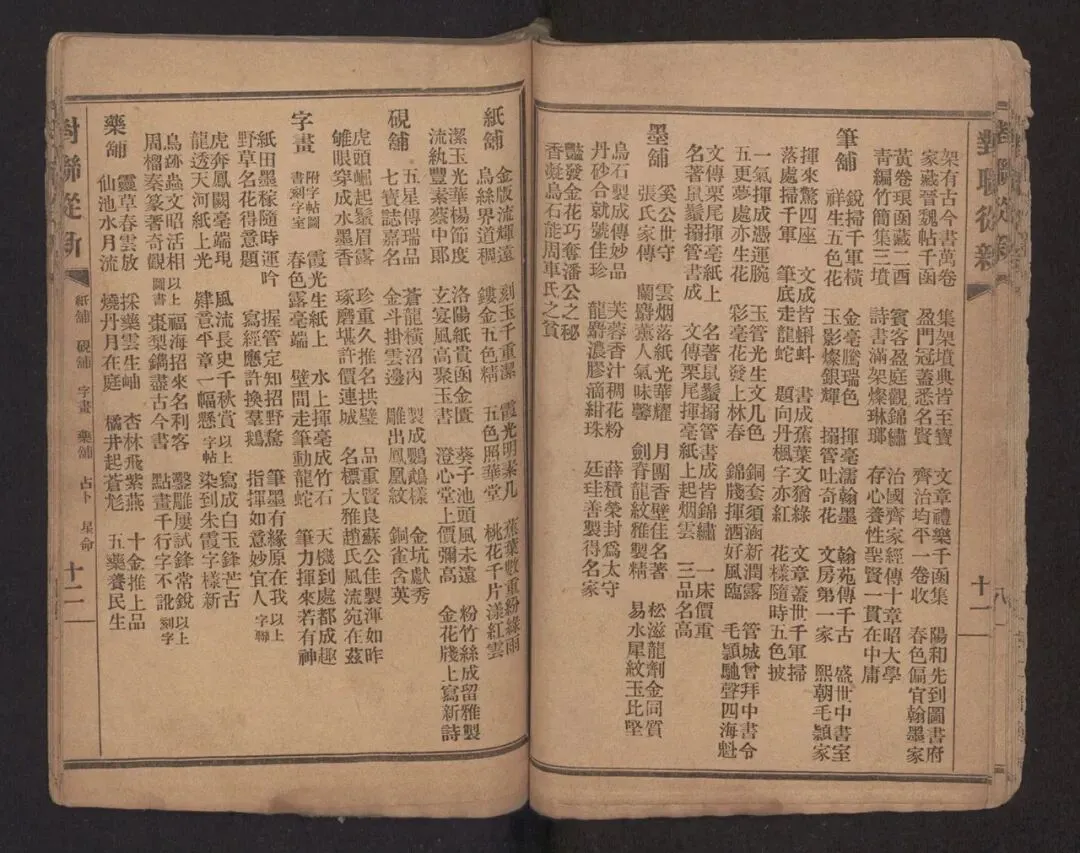 對聯從新
十一
架有古今書萬卷　集架墳典皆至寶　文章禮樂千函集　陽和先到圖書府
家藏晉魏帖千函　盈門冠蓋悉名賢　齊治均平一卷收　春色偏宜翰墨家
黃卷琅函藏二酉　賓客盈庭觀錦繡　治國齊家經傳十章昭大學
青編竹簡集三墳　詩書滿架燦琳瑯　存心養性聖賢一貫在中庸
筆舖
銳掃千軍橫　金毫騰瑞色　揮毫濡翰墨　翰苑傳千古　盛世中書室
祥生五色花　玉影燦銀輝　搦管吐奇花　文房第一家　熙朝毛穎家
揮來驚四座　文成皆蝌蚪　書成蕉葉文猶綠　文章蓋世千軍掃
落處掃千軍　筆底走龍蛇　題向丹楓字亦紅　花樣隨時五色披
一氣揮成憑運腕　玉管光生文几色　銅套須涵新潤露　管城曾拜中書令
五更夢處亦生花　彩毫花發上林春　錦牋揮洒好風臨　毛穎馳聲四海魁
文傳栗尾揮毫紙上　名著鼠鬚搦管書成皆錦繡　一床價重
名著鼠鬚搦管書成　文傳栗尾揮毫紙上起烟雲　三品名高
墨舖
奚公世守　雲烟落紙光華耀　月團香壁佳名著　松滋龍劑金同質
張氏家傳　蘭麝薰人氣味馨　劍脊龍紋雅製精　易水犀紋玉比堅
烏石製成傳妙品　芙蓉香汁稠花粉　薛積榮封爲太守
丹砂合就號佳珍　龍麝濃膠滴紺珠　廷珪善製得名家
豔發金花巧奪潘公之秘
香凝烏石能周車氏之貧
紙舖
金版流輝遠　剡玉千重潔　霞光明素几　蕉葉數重紛綠雨
烏絲界道稠　鏤金五色精　五色照華堂　桃花千片漾紅雲
潔玉光華楊節度　洛陽紙貴函金匱　葵子池頭風未遠　粉竹絲成留雅製
流紈豐素蔡中郎　玄宴風高聚玉書　澄心堂上價彌高　金花牋上寫新詩
硯舖
五星傳瑞品　蒼龍橫沼內　製成鸚鵡樣　金坑獻秀
七寶誌嘉名　金斗掛雲邊　雕出鳳凰紋　銅雀含英
虎頭崛起鬚眉露　珍重久推名拱璧　品重賢良蘇公佳製渾如昨
雊眼穿成水墨香　琢磨堪許價連城　名標大雅趙氏風流宛在茲
字畫　附字帖圖書刻字室
霞光生紙上　水上揮毫成竹石　天機到處都成趣
春色露毫端　壁間走筆動龍蛇　筆力揮來若有神
紙田墨稼隨時運吟　握管定知招野鶩　筆墨有緣原在我以上
野草名花得意題　寫經應許換羣鵝　指揮如意妙宜人字聯
虎奔鳳闕毫端現　風流長史千秋賞以上　寫成白玉鋒芒古
龍透天河紙上光　肆意平章一幅懸字帖　染到朱霞字樣新
鳥跡蟲文昭活相以上　福海招來名利客　鑿雕屢試鋒常銳以上
周榴秦篆著奇觀圖書　棗梨鐫盡古今書　點畫千行字不訛刻字
藥舖
靈草春雲放　採藥雲生岫　杏林飛紫燕　十金推上品
仙池水月流　燒丹月在庭　橘井起蒼尨　五藥養民生
對聯從新
紙舖　硯舖　字畫　藥舖　占卜　星命
十二